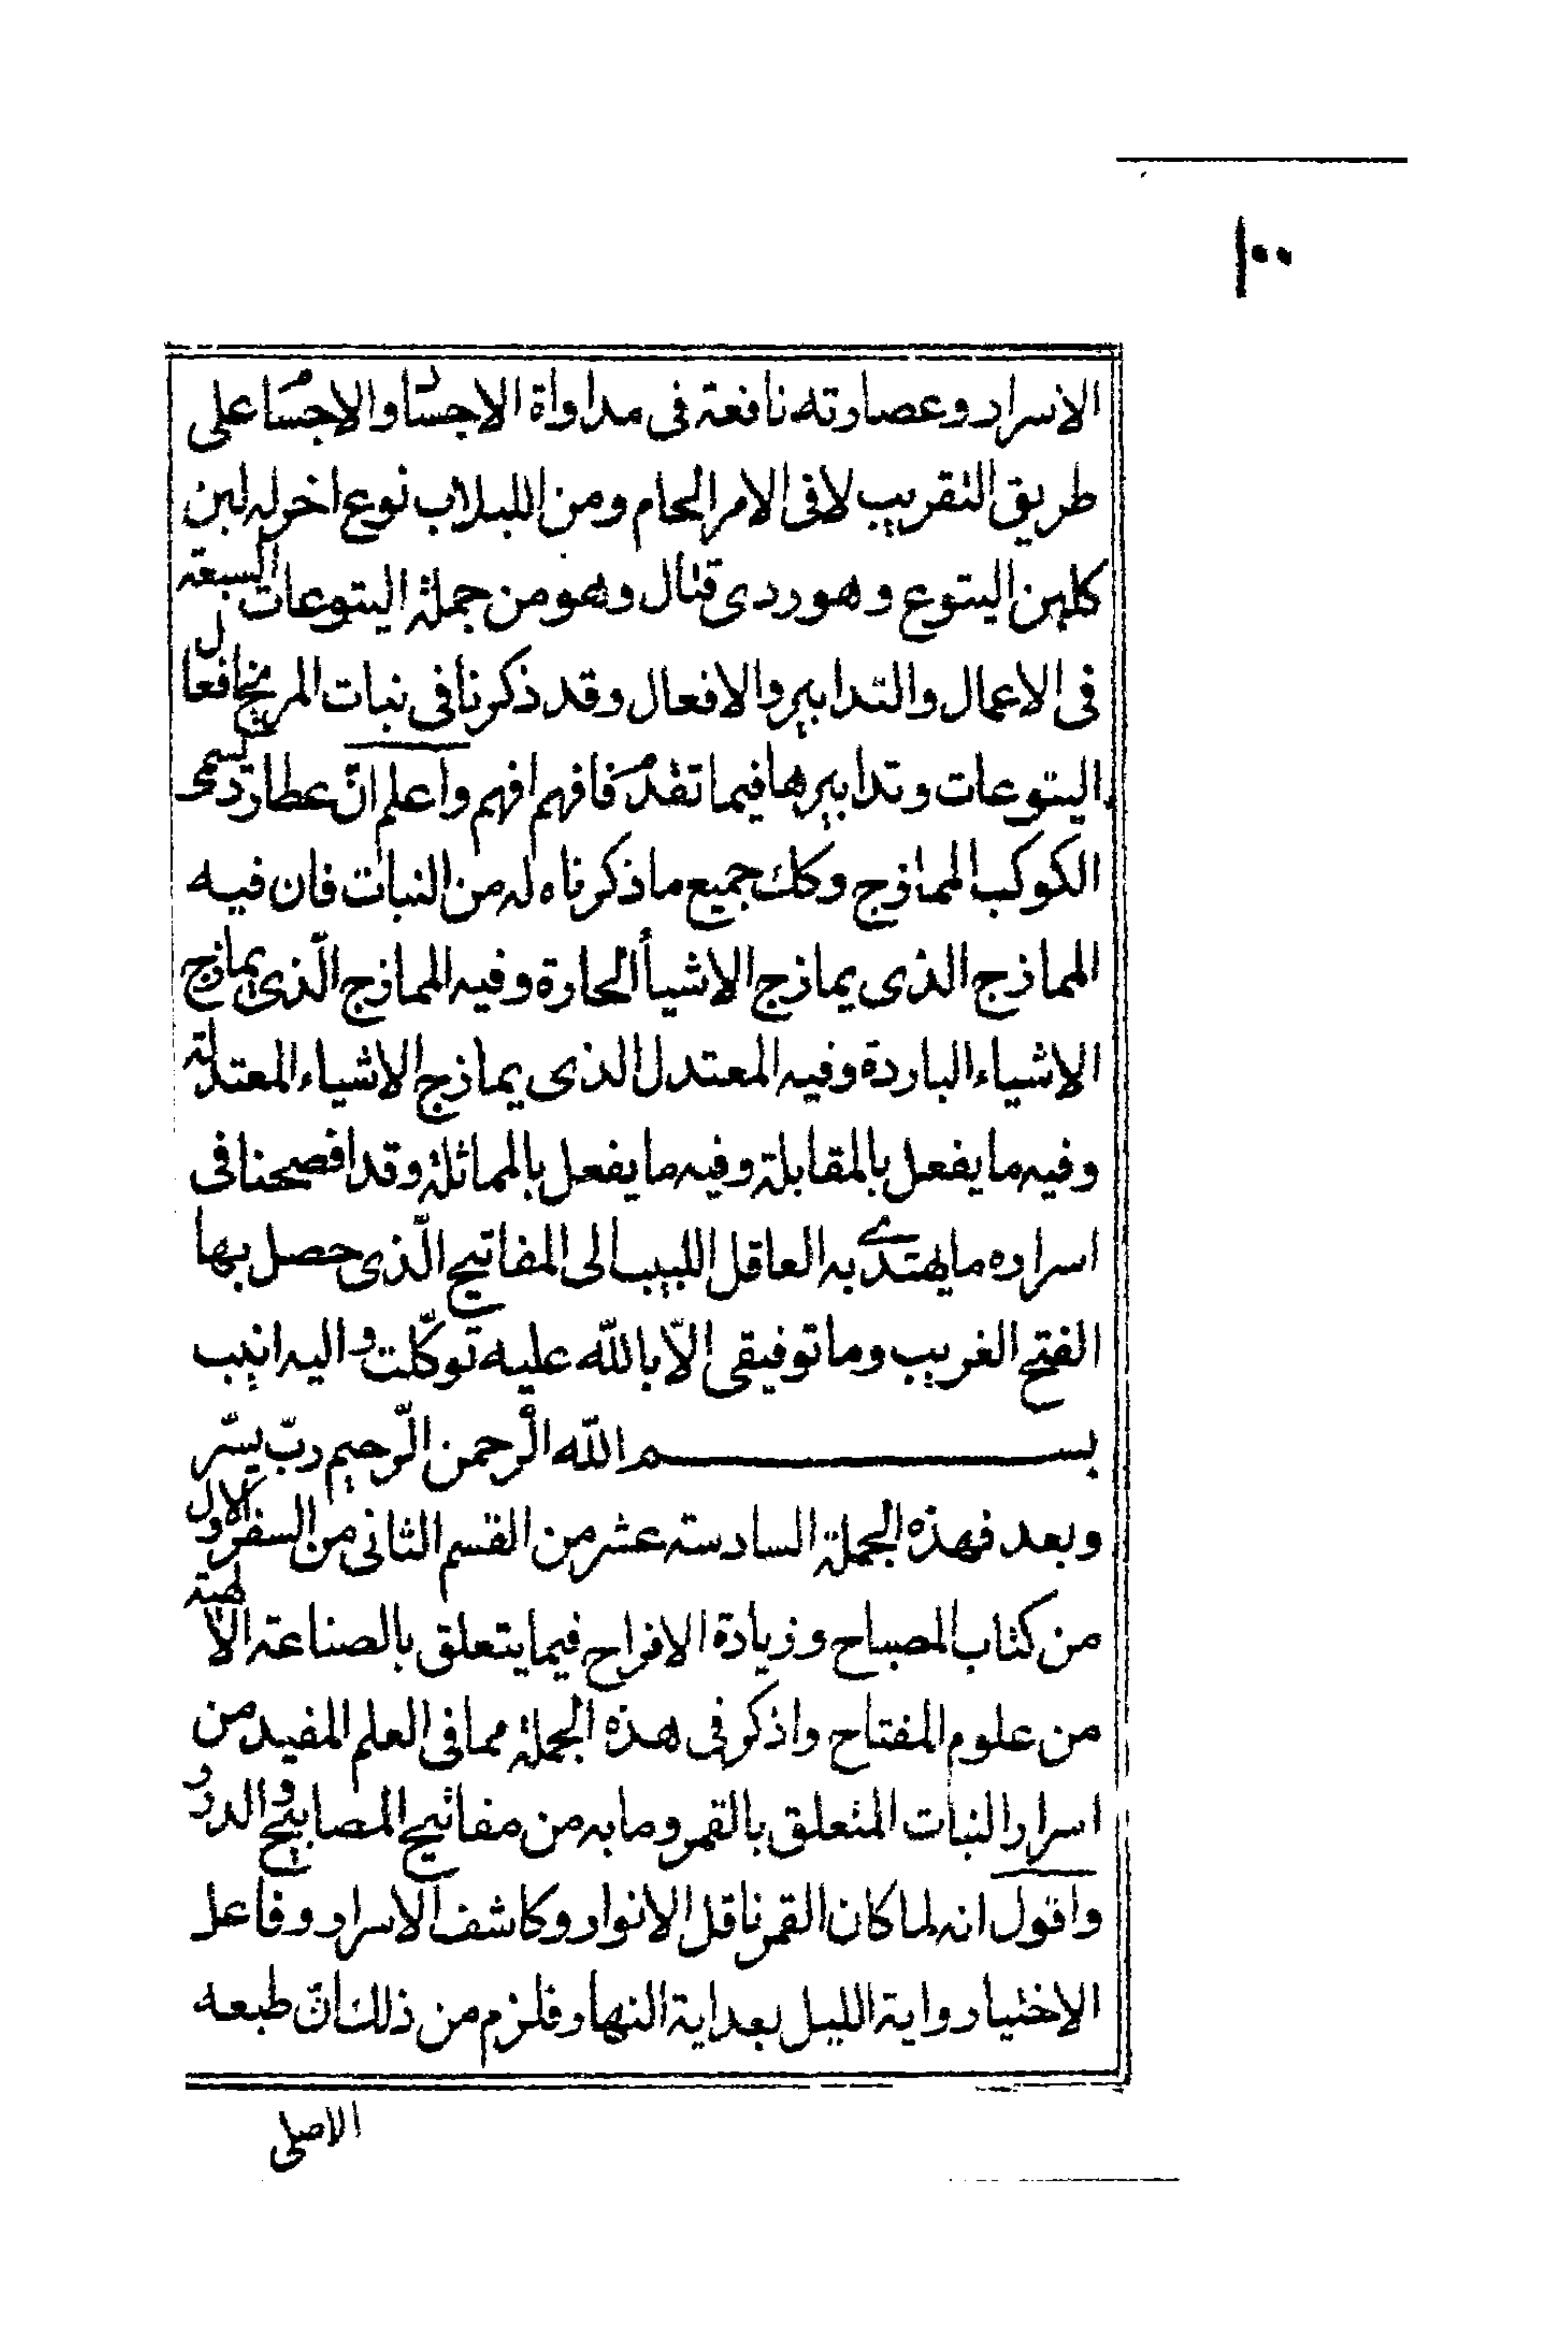 ١٠٠
الاسرار وعصارته نافعة فى مداواة الاجساد والاجسام على
طريق التقريب لا فى الامر الحام ومن اللبلاب نوع اخر له لبن
كلبن اليتوع وهو ردى قتال وهو من جملة اليتوعات السبعة
فى الاعمال والتدابير والافعال وقد ذكرنا فى نبات المريخ افعال
اليتوعات وتدابيرها فيما تقدم فافهم افهم واعلم انّ عطارد يسمى
الكوكب الممازج وكك جميع ما ذكرناه له من النبات فان فيه
الممازج الذى يمازج الاشيأ الحارة وفيه الممازج الّذى يمازج
الاشياء الباردة وفيه المعتدل الذى يمازج الاشياء المعتدلة
وفيه ما يفعل بالمقابلة وفيه ما يفعل بالمماثلة وقد افصحنا فى
اسراره ما يهتدى به العاقل اللبيب الى المفاتيح الّذى حصل بها
الفتح الغريب وما توفيقى الّا بالله عليه توكّلت واليه انيب
بسم الله الرّحمن الرّحيم ربّ يسّر
وبعد فهذه الجملة السادسة عشر من القسم الثانى من السفر الاول
من كتاب المصباح وزيادة الافراح فيما يتعلق بالصناعة الالهية
من علوم المفتاح واذكر فى هذه الجملة مما فى العلم المفيد من
اسرار النبات المتعلق بالقمر وما به من مفاتيح المصابيح والدرر
واقول انه لما كان القمر ناقل الانوار وكاشف الاسرار وفاعل
الاختيار واية الليل بعد اية النهار فلزم من ذلك انّ طبعه
الاصلى